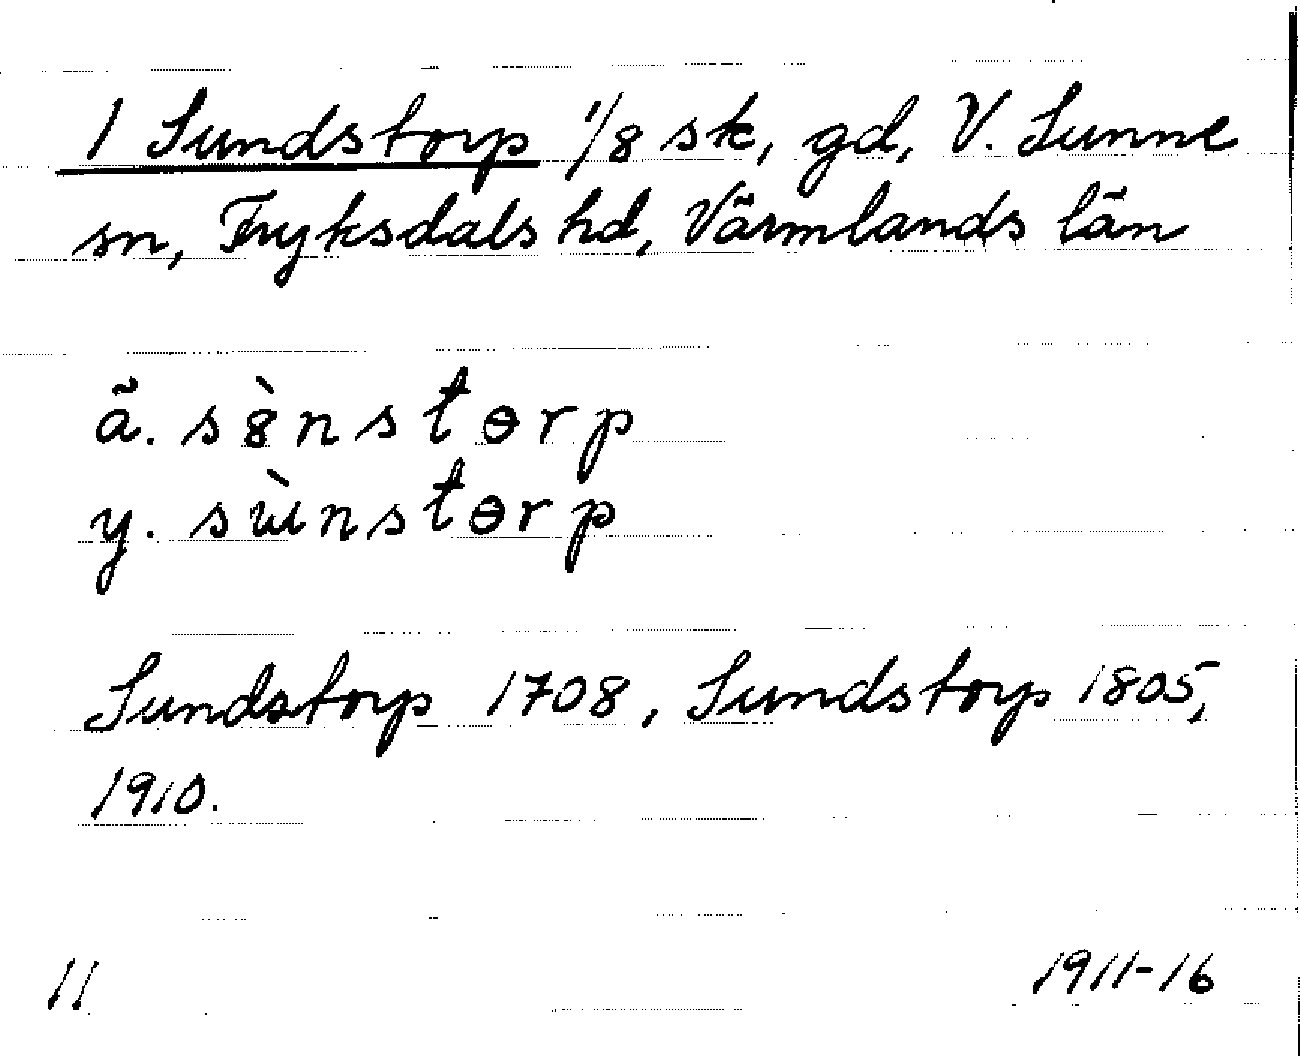 1 Sundstorp 1/8 sk, gd, V. Sunne
sn, Fryksdals hd, Värmlands län
ä. s8̀nstɵrp
y. sɯ̀nstɵrp
Sundstorp 1708, Sundstorp 1805,
1910.
11 1911-16